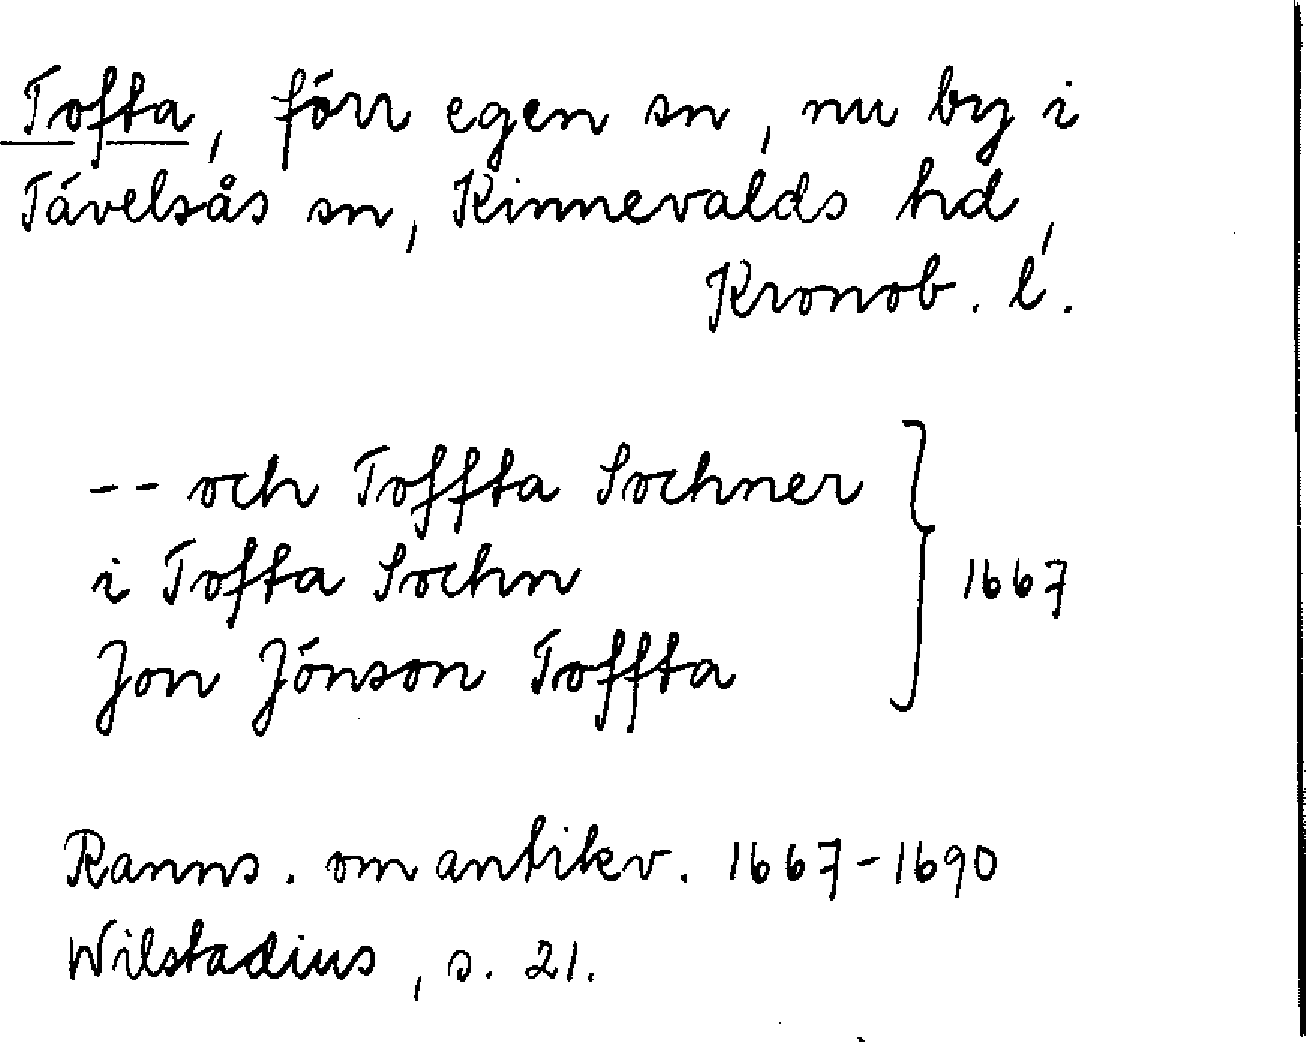 Tofta, förr egen sn, nu by i
Tävelsås sn, Kinnevalds hd,
Kronob. l.
-- och Toffta Sochner
i Tofta Sochn
Jon Jönson Toffta
} 1667
Ranns. om antikv. 1667-1690
Wilstadius, s. 21.